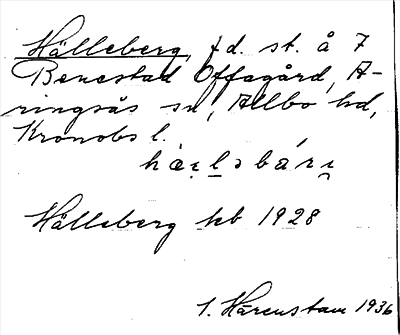 Hälleberg, f.d. st. å 7
Benestad Offagård, A-
ringsås sn, Allbo hd,
Kronobs l.
Hälleberg kb 1928
I. Härenstam 1936